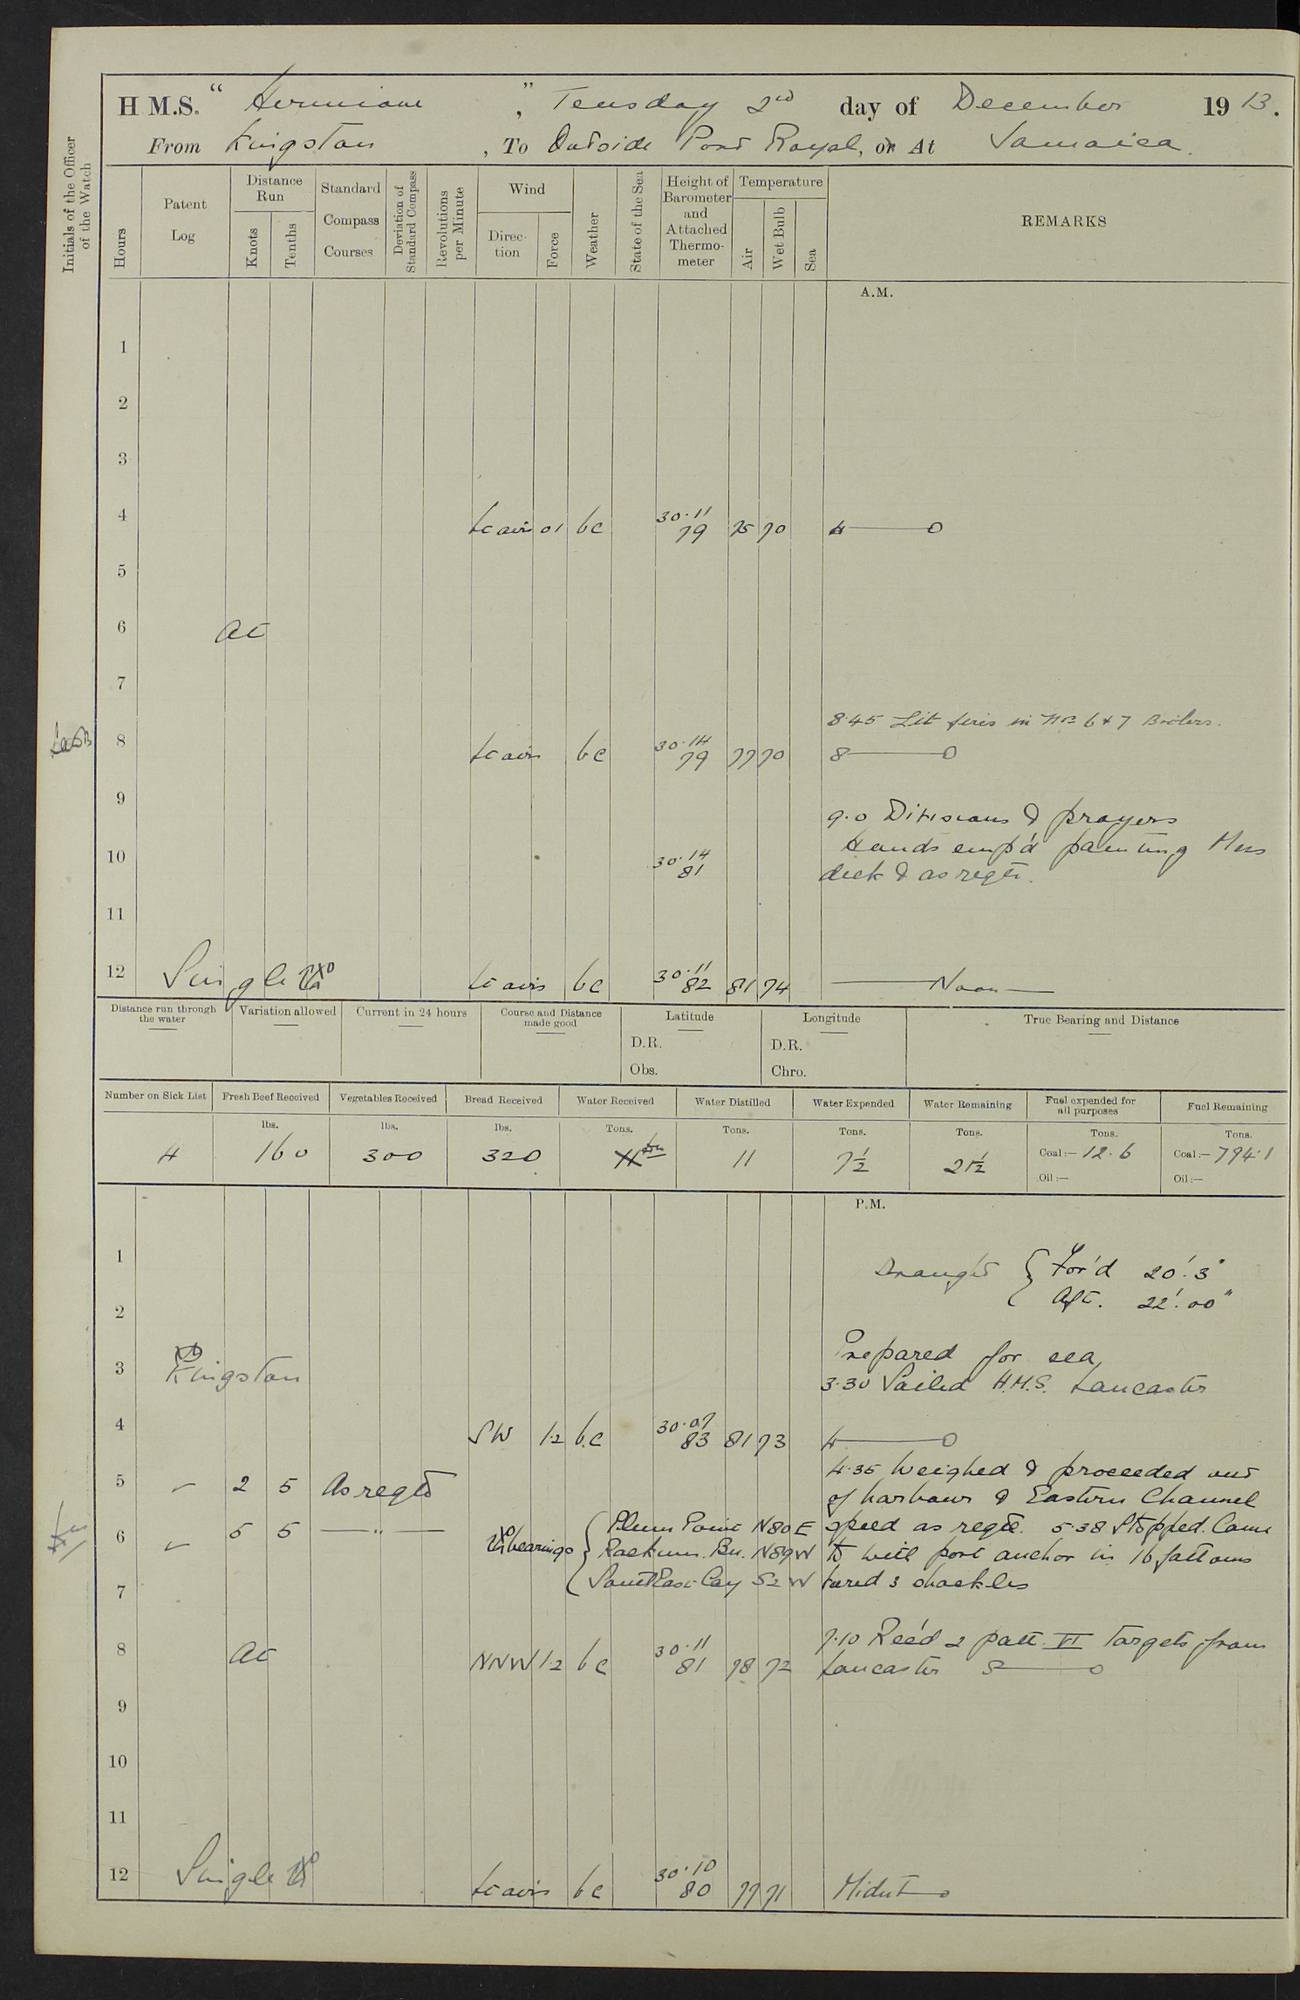 H.M.S. " Hermione ", Tuesday 2nd day of December 1913.
From Kingston, To Outside Port Royal, or At Jamaica.
Initials of the Officer of the Watch
Hours
Patent Log
Distance Run
Knots
Tenths
Standard Compass Courses
Deviation of Standard Compass
Revolutions per Minute
Wind
Direction
Force
Weather
State of the Sea
Height of Barometer and Attached Thermometer
Temperature
Air
Wet Bulb
Sea
REMARKS
A.M.
1
2
3
4 bc 30.11 79 75 70 4
5
6 At
7
8.45 Lit fires in Nos 6 & 7 Boilers.
8 bc 30.14 79 77 70 8
9
9.0 Divisions & prayers
10 30.14 81 Hands emp'd painting Mess
deck & as reqte.
11
12 Single bc 30.11 82 81 74 Noon
Distance run through the water
Variation allowed
Current in 24 hours
Course and Distance made good
Latitude
D.R.
Obs.
Longitude
D.R.
Chro.
True Bearing and Distance
Number on Sick List
Fresh Beef Received
Vegetables Received
Bread Received
Water Received
Water Distilled
Water Expended
Water Remaining
Fuel expended for all purposes
Fuel Remaining
lbs. lbs. lbs. Tons. Tons. Tons. Tons. Tons. Tons.
4 160 300 320 11 7½ 21½ Coal:— 12.6 Coal:— 794.1
Oil:— Oil:—
P.M.
1 Draught { For'd 20'.3"
2 Aft. 22'.00"
Prepared for sea
3 Kingston 3.30 Sailed H.M.S. Lancaster
4 SW 1.2 bc 30.07 83 81 73 4
4.35 Weighed & proceeded out
5 2 5 As reqte of harbour & Eastern Channel
6 5 5 — " — bearings { Plum Point N80E speed as reqte. 5.38 Stopped. Came
Rackum. Bn. N89W to with port anchor in 16 fathoms
7 South East Cay S2W veered 3 shackles
7.10 Rec'd 2 patt. VI targets from
8 At NNW 1.2 bc 30.11 81 78 72 Lancaster 8
9
10
11
12 Single bc 30.10 80 77 71 Midnt